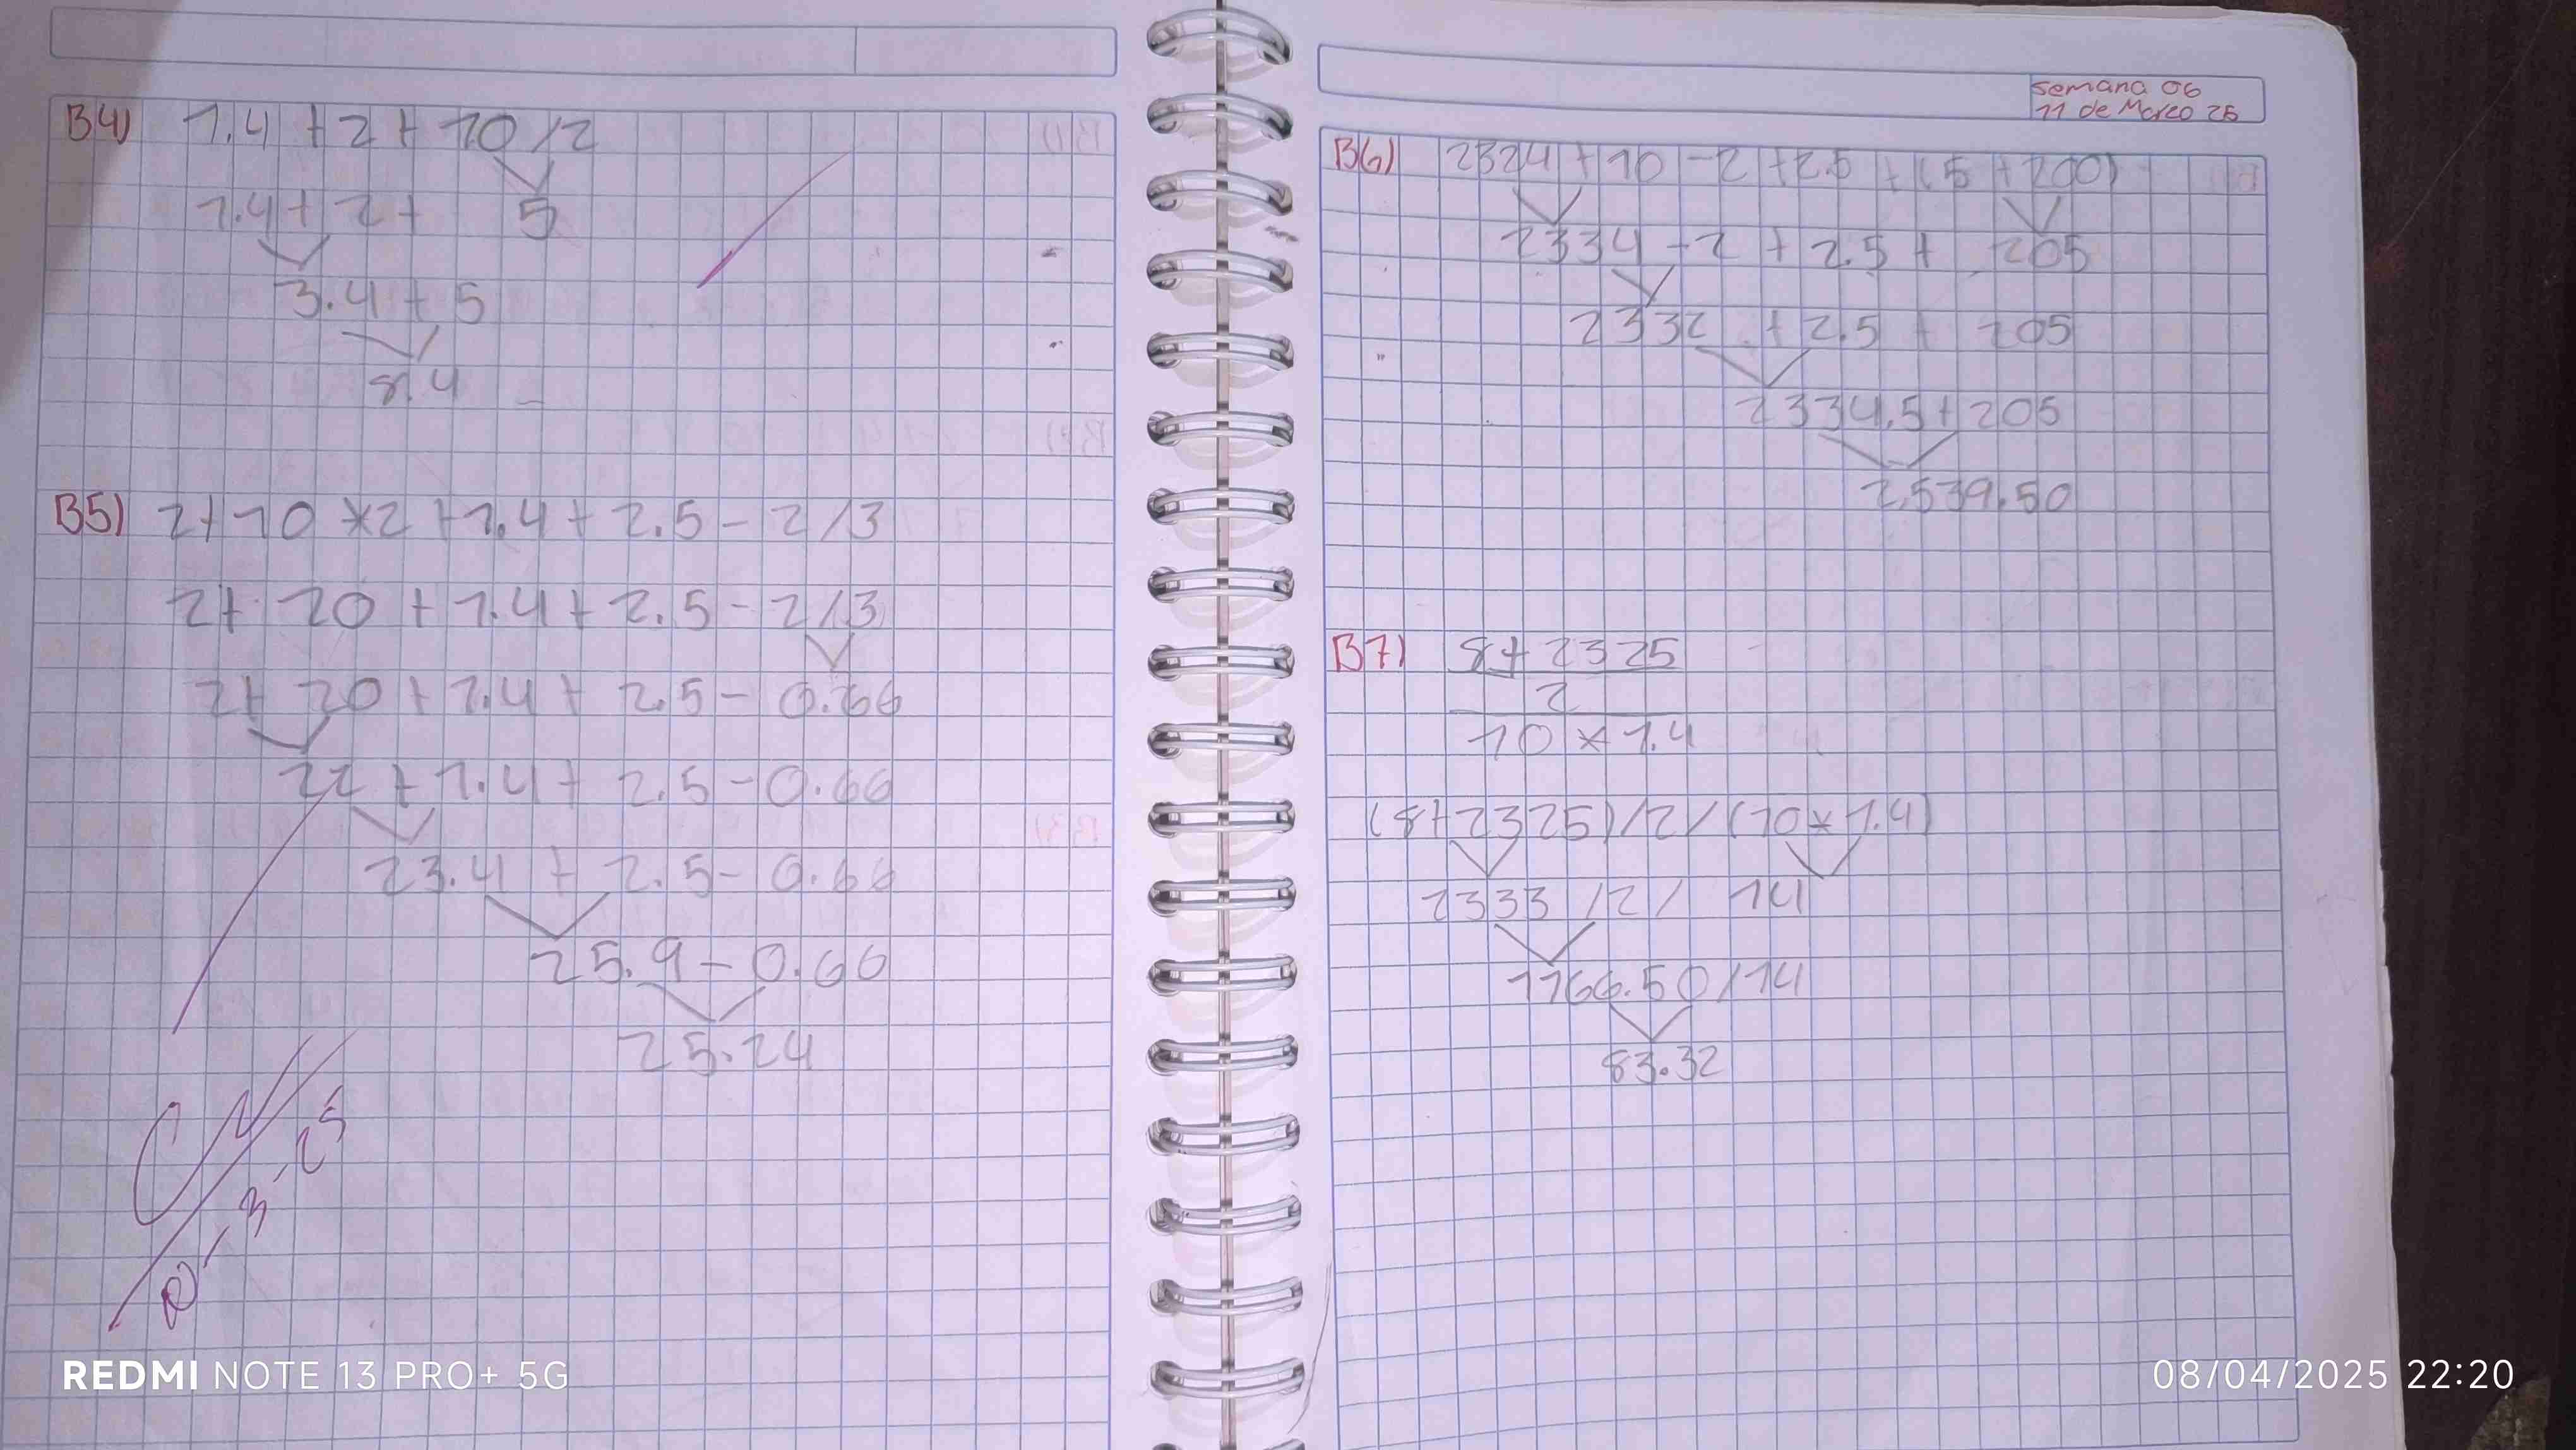 B4) 1.4 + 2 + 10 / 2
1.4 + 2 + 5
3.4 + 5
8.4
B5) 2 + 10 * 2 + 1.4 + 2.5 - 2 / 3
2 + 20 + 1.4 + 2.5 - 2 / 3
2 + 20 + 1.4 + 2.5 - 0.66
22 + 1.4 + 2.5 - 0.66
23.4 + 2.5 - 0.66
25.9 - 0.66
25.24
Semana 06
11 de Marzo 25
B6) 2324 + 10 - 2 + 2.5 + (5 + 200)
2334 - 2 + 2.5 + 205
2332 + 2.5 + 205
2334.5 + 205
2,539.50
B7) 8 + 2325
2
10 * 1.4
(8 + 2325) / 2 / (10 * 1.4)
2333 / 2 / 14
1166.50 / 14
83.32
REDMI NOTE 13 PRO+ 5G
08/04/2025 22:20